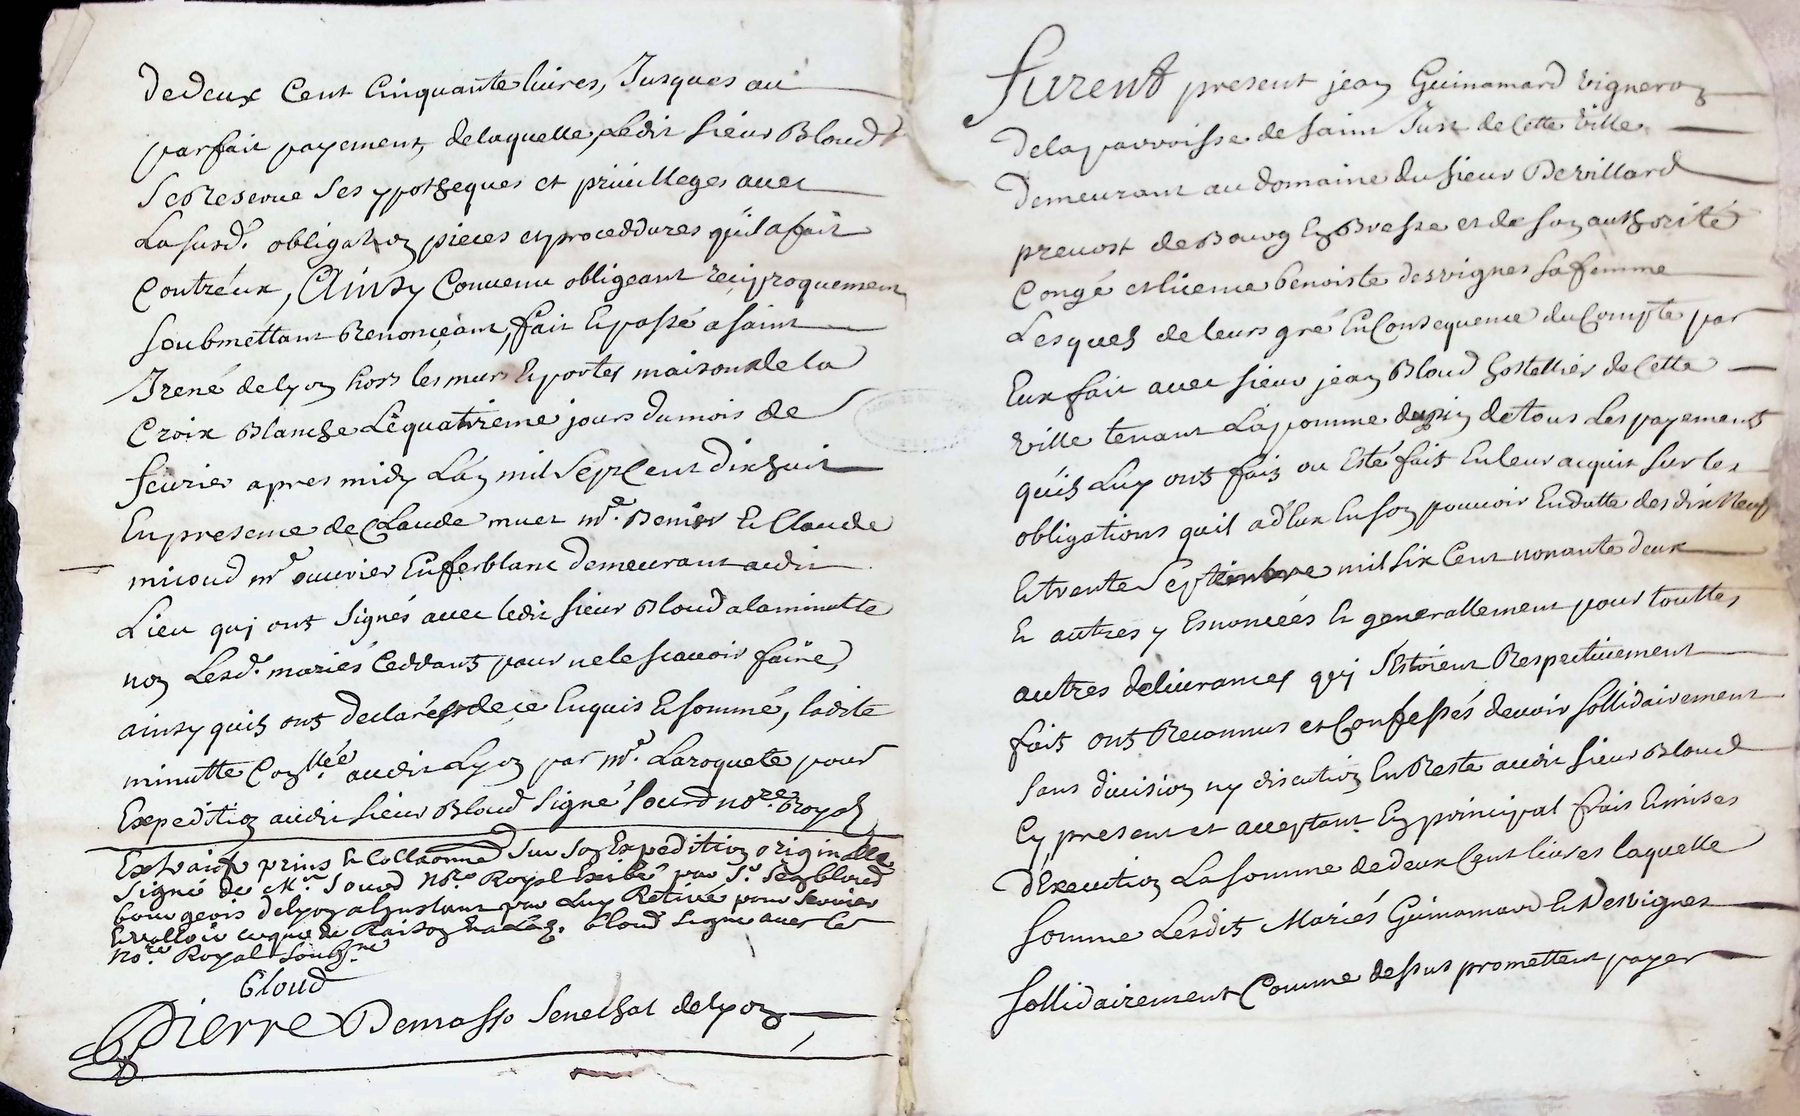 dedeux Cent Cinquante livres, Jusques au
parfait payement, delaquelle, Ledit Sieur Bloud
Se Reserve Ses ypotheques et privilleges avec
La susd. obligation pieces et proceddures quil a fait
Contréux, Ainsy Convenu obligeant reciproquement
Soubmettant Renonceant, fait Et passé a saint
Irené de lyon hors les murs Et portes maison de la
Croix Blanche Le quatrieme jours du mois de
fevrier apres midy L'an mil Sept Cent dix huit
En presence de Claude muet me. Et Claude
micoud me ouvrier En ferblanc demeurant audit
Lieu qui ont Signés avec ledit Sieur Bloud a la minutte
non Lesd. mariés pour ne le scavoir faire,
ainsy quils ont declarés de ce Enquis Et sommé, ladite
minutte Conllée audit Lyon par me. Laroquete pour
Expedition audit Sieur Bloud Signé Sourd nore. Royal
Extraict prins Et Collaonné Sur Son Expedition originalle
Signé de Me Sourd Nore Royal Exibé par Sr Jean bloud
bourgeois de lyon a l'instant par Luy Retiré pour Servir
Et valloir ce que de Raison Bloud Signe avec le
Nore Royal Soubzne
bloud
Pierre Demasso Senechal de lyon
Furent present jean Guinamard vigneron
de la parroisse de Saint Just de Cette Ville
demeurant au domaine du sieur Devillard
prevost de Bourg En Bresse et de son authorité
Congé et licence benoiste desvignes sa femme
Lesquels de leurs gré En Consequence du Compte par
Eux fait avec Sieur jean Bloud hostellier de Cette
Ville tenant La pomme du pin de tous Les payements
quils Luy ont fais ou Esté fait En leur acquit Sur les
obligations quil a d'Eux En son pouvoir En datte des dix Neuf
Et trente Septembre mil Six Cent nonante deux
Et autres y Esnoncées Et generallement pour touttes
autres delivrances quj S'Estoient Respectivement
fait ont Reconnus et Confessés devoir Sollidairement
Sans division ny discution En Reste audit Sieur Bloud
Cy present et acceptant En principal frais Et mises
d'Execution La somme de deux Cent livres laquelle
Somme Lesdits Mariés Guinamard Et Desvignes
Sollidairement Comme dessus promettent payer